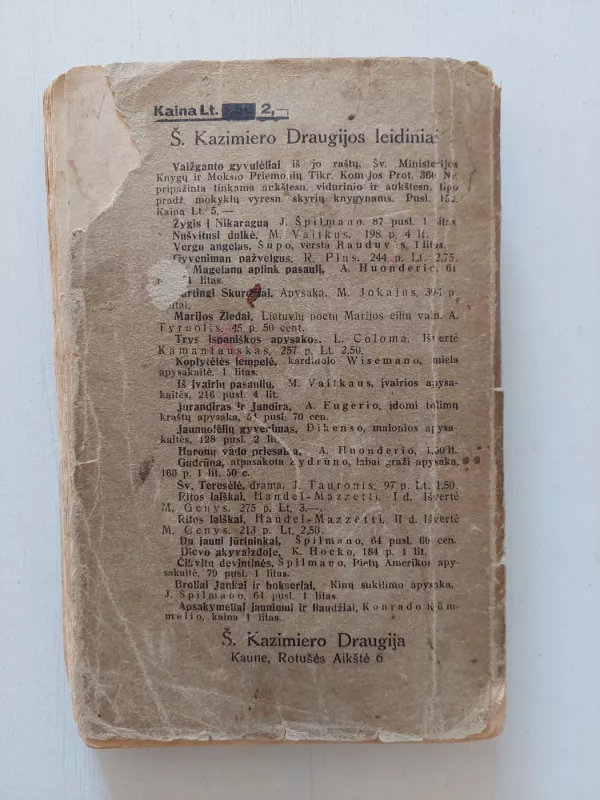 Kaina Lt. 2,—
Š. Kazimiero Draugijos leidiniai
Vaižganto gyvulėliai iš jo raštų, Šv. Ministerijos
Knygų ir Mokslo Priemonių Tikr. Komjos Prot. 366 №
pripažinta tinkama aukštesn. vidurinio ir aukštesn. tipo
pradž. mokyklų vyresn. skyrių knygynams. Pusl. 152
Kaina Lt. 5,—
Žygis į Nikaraguą J. Špilmano, 87 pusl. 1 litas
Nušvitusi dulkė, M. Vaitkus, 198 p. 4 lt.
Vergų angelas, Šupo, versta 1 litas.
Gyveniman pažvelgus, R. Plus. 244 p. Lt. 2,75.
Magelanu aplink pasaulį, A. Huonderio, 61
1 litas.
Apysaka. M. Jokajus, 394 p.
litai.
Marijos Žiedai, Lietuvių poetų Marijos eilių vain. A.
Tyruolis, 45 p. 50 cent.
Trys ispaniškos apysakos. L. Coloma. Išvertė
Kamantauskas, 257 p. Lt. 2,50.
Koplytėlės lempelė, kardinolo Wisemano, miela
apysakaitė. 1 litas.
Iš įvairių pasaulių, M. Vaitkaus, įvairios apysa-
kaitės, 216 pusl. 4 lit.
Jurandiras ir Jandira, A. Fugerio, įdomi tolimų
kraštų apysaka, 54 pusl. 70 cen.
Jaunuolėlių gyvenimas, Dikenso, malonios apysa-
kaitės, 128 pusl. 2 lit.
Huronų vado priesaika, A. Huonderio, 1,50 lt.
Gudruna, atpasakota Žydrūno, labai graži apysaka,
160 p. 1 lit. 50 c.
Šv. Teresėlė, drama, J. Tauronis. 97 p. Lt. 1,50.
Ritos laiškai, Handel-Mazzetti, I d. Išvertė
M. Genys. 275 p. Lt. 3,—.
Ritos laiškai, Handel-Mazzetti, II d. Išvertė
M. Genys. 213 p. Lt. 2,50.
Du jauni jūrininkai, Špilmano, 64 pusl. 60 cen.
Dievo akyvaizdoje, K. Hocko, 184 p. 1 lit.
Čikvitų devintinės, Špilmano, Pietų Amerikos apy-
sakaitė, 79 pusl. 1 litas.
Broliai Jankai ir bokseriai, Kinų sukilimo apysaka,
J. Špilmano, 64 pusl. 1 litas.
Apsakymėliai jaunimui ir liaudžiai, Konrado Küm-
melio, kaina 1 litas.
Š. Kazimiero Draugija
Kaune, Rotušės Aikštė 6